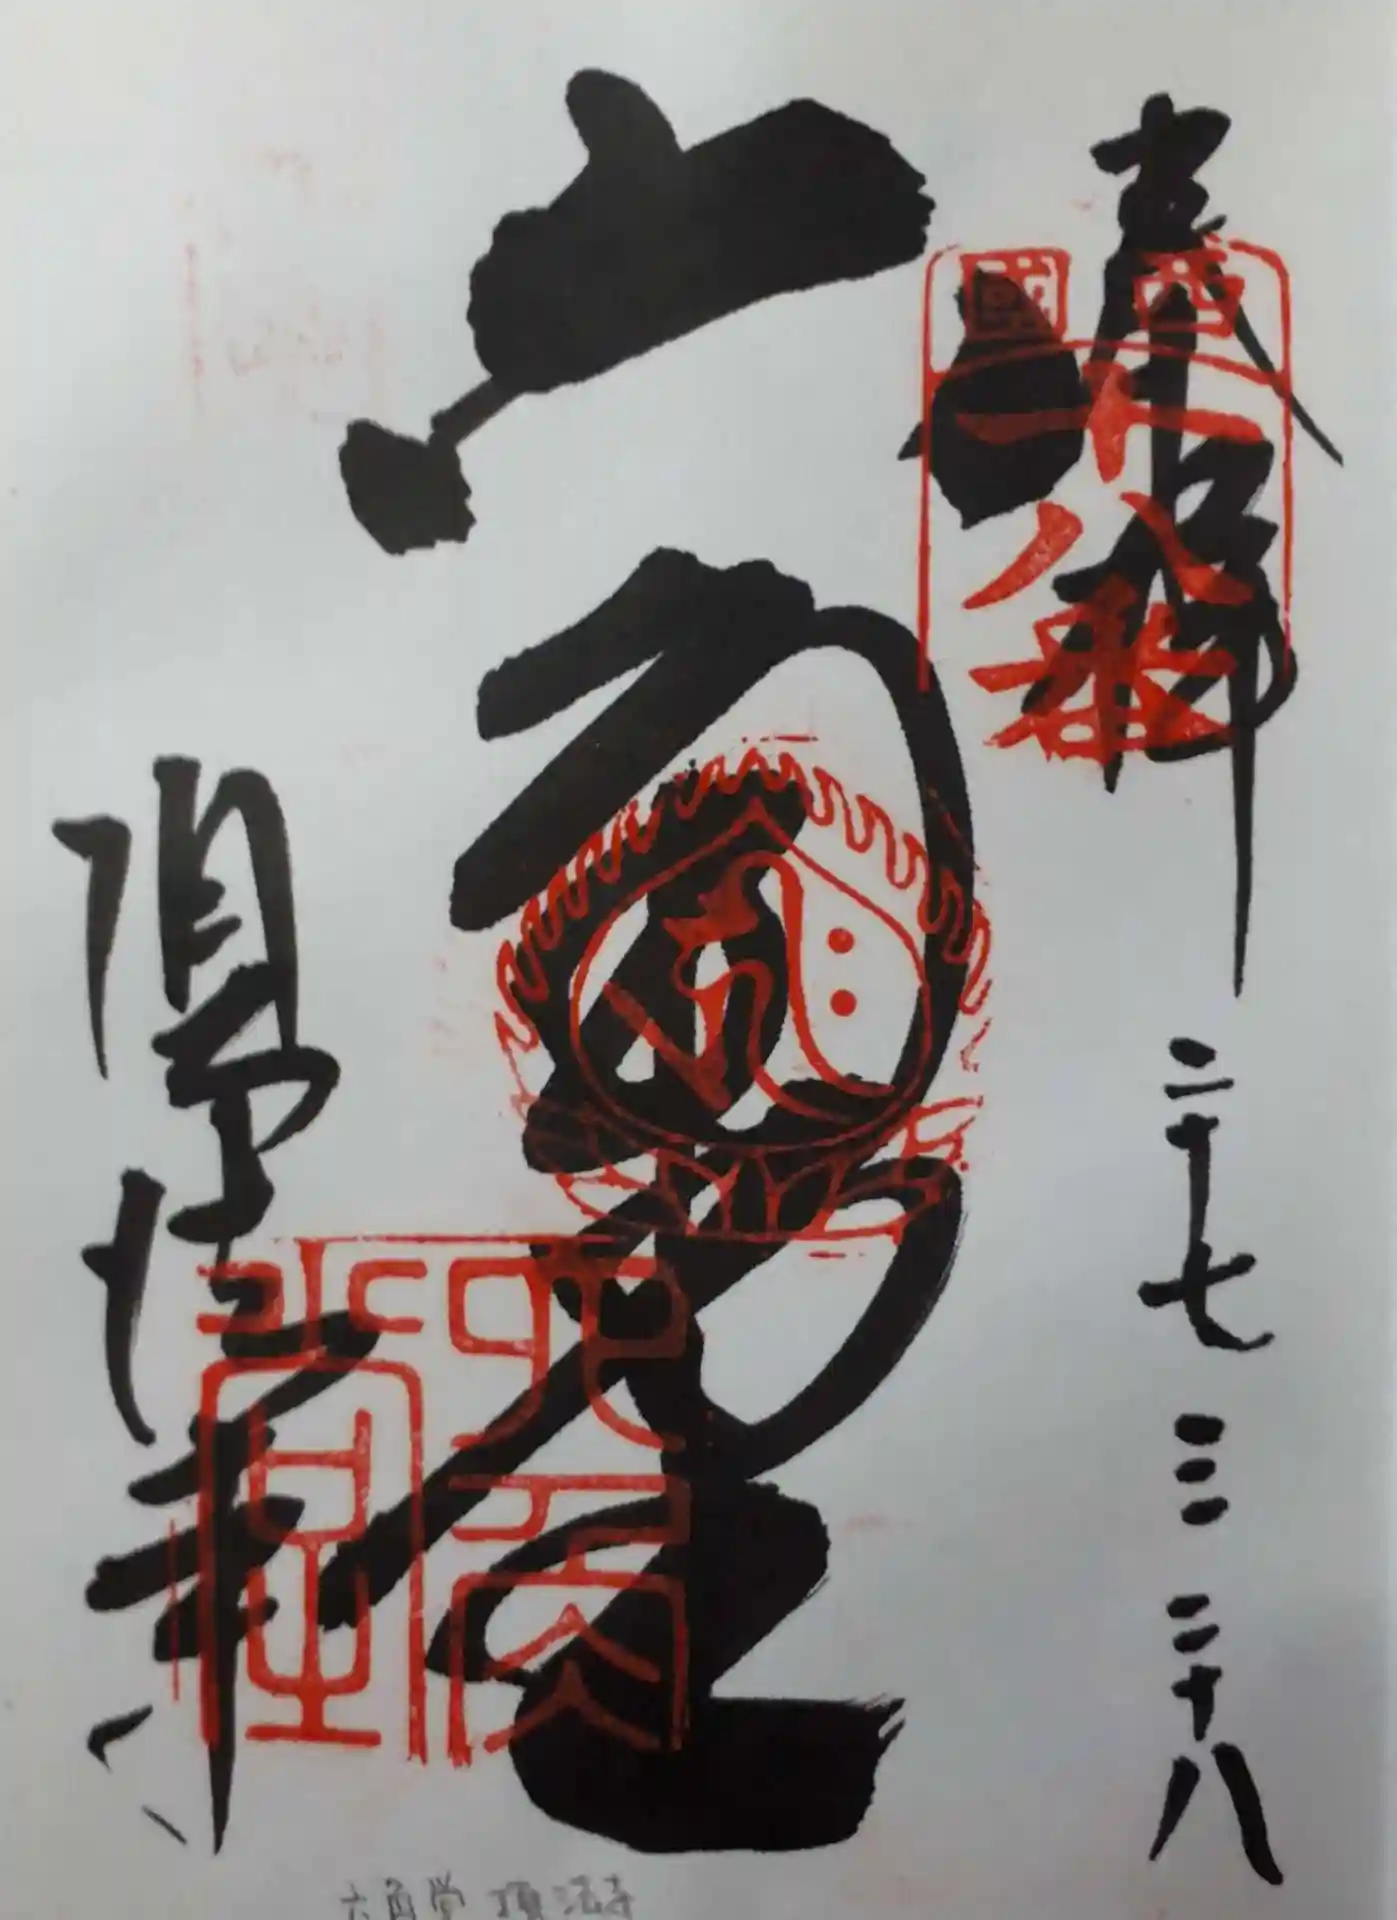 奉拝
二十七 三 二十八
西國
十八番
六角堂
頂法寺
六角堂
六角堂 頂法寺